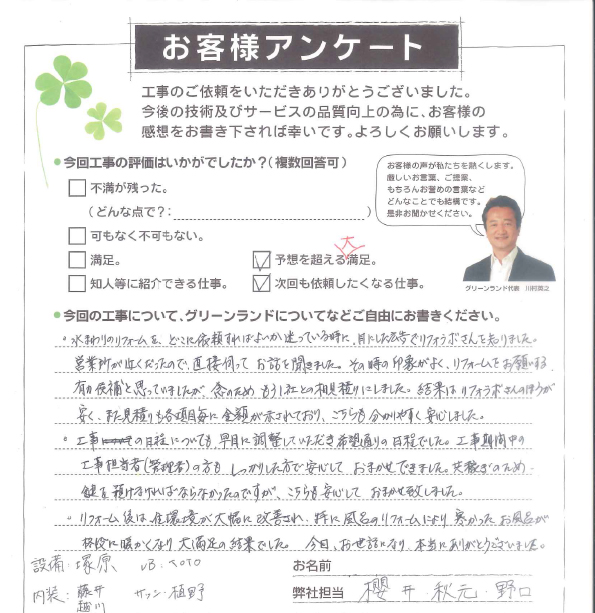 お客様アンケート
工事のご依頼をいただきありがとうございました。
今後の技術及びサービスの品質向上の為に、お客様の
感想をお書き下されば幸いです。よろしくお願いします。
●今回工事の評価はいかがでしたか？（複数回答可）
不満が残った。
（どんな点で？： ）
可もなく不可もない。
満足。
予想を超える大満足。
知人等に紹介できる仕事。
次回も依頼したくなる仕事。
お客様の声が私たちを熱くします。
厳しいお言葉、ご提案、
もちろんお誉めの言葉など
どんなことでも結構です。
是非お聞かせください。
グリーンランド代表 川村英之
●今回の工事について、グリーンランドについてなどご自由にお書きください。
。水まわりのリフォームを、どこに依頼すればよいか迷っている時に、目にした広告でリフォラボさんを知りました。
営業所が近くだったので、直接伺って お話を聞きました。その時の印象がよく、リフォームをお願いする
有力候補と思っていましたが、念のため もう1社との相見積りにしました。結果は リフォラボさんのほうが
安く、また見積りも各項目毎に 金額が示されており、こちらも分かりやすく 安心しました。
。工事の日程についても、早目に調整していただき希望通りの日程でした。工事期間中の
工事担当者（管理者）の方も しっかりした方で安心して おまかせできました。共稼ぎのため、
鍵を預けなければならなかったのですが、こちらも安心して おまかせ致しました。
。リフォーム後は、住環境が大幅に改善され、特に風呂のリフォームにより 寒かったお風呂が
格段に暖かくなり 大満足の結果でした。 今回、お世話になり、本当にありがとうございました。
設備・塚原 UB・TOTO
お名前
内装・藤井 サッシ・植野
越川
弊社担当 櫻井・秋元・野口